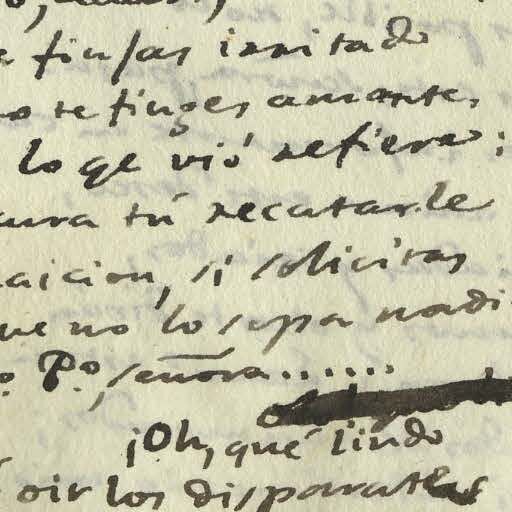 finjas irritado
no te finges amante,
lo qe vió refiere;
tú recatarle
si solicitas
que no lo sepa nadi
Po, señora......
¡Oh, qué lindo
oir los disparates